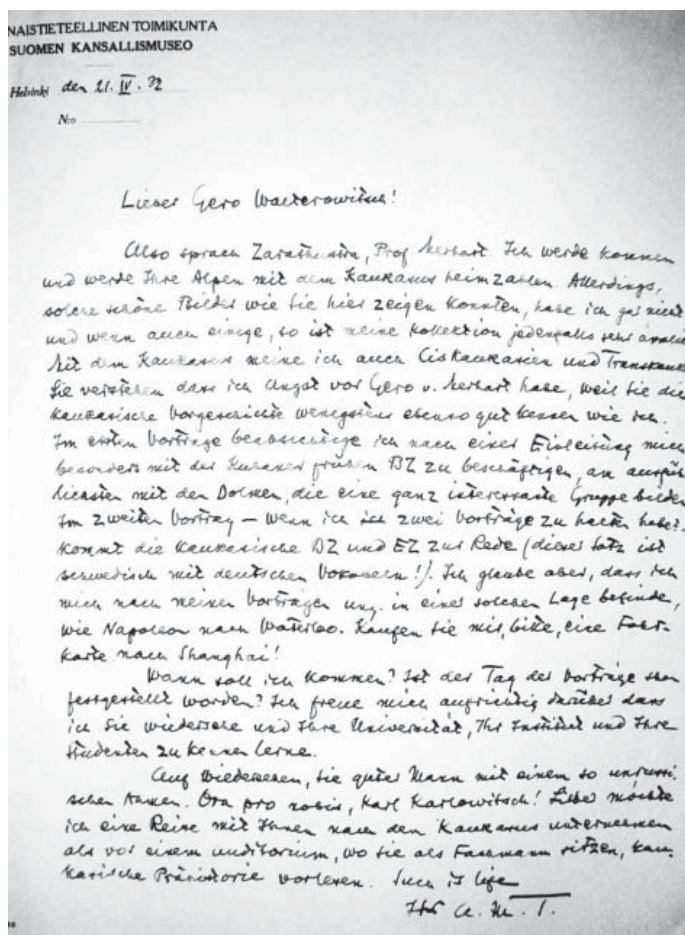 NAISTIETEELLINEN TOIMIKUNTA
SUOMEN KANSALLISMUSEO
Helsinki den 21. IV. 32
N:o
Lieber Gero Walterowitsch!
Also sprach Zarathustra, Prof. Merhart. Ich werde kommen
und werde Ihre Alpen mit dem Kaukasus heimzahlen. Allerdings,
solche schöne Bilder wie Sie hier zeigen konnten, habe ich gar nicht
und wenn auch einige, so ist meine Kollektion jedenfalls sehr
Mit dem Kaukasus meine ich auch Ciskaukasien und Transkauk
Sie verstehen dass ich Angst vor Gero v. Merhart habe, weil Sie die
kaukasische Vorgeschichte wenigstens ebenso gut kennen wie ich.
Im ersten Vortrage beabsichtige ich nach einer Einleitung mich
besonders mit der Kubaner frühen BZ zu beschäftigen, am ausfüh
lichsten mit den Dolmen, die eine ganz interessante Gruppe bilden
Im zweiten Vortrag – wenn ich zwei Vorträge zu halten habe?
kommt die kaukasische BZ und EZ zur Rede (dieser Satz ist
schwedisch mit deutschen Vokabeln!). Ich glaube aber, dass ich
mich nach meinen Vorträgen ung. in einer solchen Lage befinde,
wie Napoleon nach Waterloo. Kaufen Sie mir, bitte, eine Fahr-
karte nach Shanghai!
Wann soll ich kommen? Ist der Tag der Vorträge schon
festgestellt worden? Ich freue mich aufrichtig darüber dass
ich Sie wiedersehe und Ihre Universität, Ihr Institut und Ihre
Studenten zu kennen lerne.
Auf Wiedersehen, Sie guter Mann mit einem so unrussi-
schen Namen. Ora pro nobis, Karl Karlowitsch! Lieber möchte
ich eine Reise mit Ihnen nach dem Kaukasus unternehmen
als vor einem Auditorium, wo Sie als Fachmann sitzen, kau-
kasische Prähistorie vorlesen. Such is life
Ihr A. M. T.